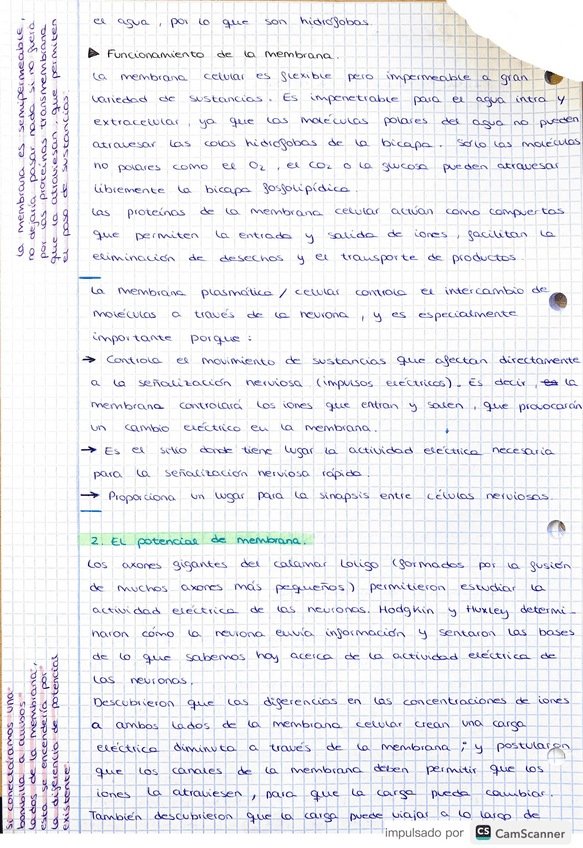 el agua, por lo que son hidrófobas.
▶ Funcionamiento de la membrana.
La membrana celular es flexible pero impermeable a gran
variedad de sustancias. Es impenetrable para el agua intra y
extracelular, ya que las moléculas polares del agua no pueden
atravesar las colas hidrófobas de la bicapa. Solo las moléculas
no polares como el O₂, el CO₂ o la glucosa pueden atravesar
libremente la bicapa fosfolipídica.
Las proteínas de la membrana celular actúan como compuertas
que permiten la entrada y salida de iones, facilitan la
eliminación de desechos y el transporte de productos.
La membrana plasmática / celular controla el intercambio de
moléculas a través de la neurona, y es especialmente
importante porque:
→ Controla el movimiento de sustancias que afectan directamente
a la señalización nerviosa (impulsos eléctricos). Es decir, es la
membrana controlará los iones que entran y salen, que provocarán
un cambio eléctrico en la membrana.
→ Es el sitio donde tiene lugar la actividad eléctrica necesaria
para la señalización nerviosa rápida.
→ Proporciona un lugar para la sinapsis entre células nerviosas.
2. El potencial de membrana.
Los axones gigantes del calamar Loligo (formados por la fusión
de muchos axones más pequeños) permitieron estudiar la
actividad eléctrica de las neuronas. Hodgkin y Huxley determi-
naron cómo la neurona envía información y sentaron las bases
de lo que sabemos hoy acerca de la actividad eléctrica de
las neuronas.
Descubrieron que las diferencias en las concentraciones de iones
a ambos lados de la membrana celular crean una carga
eléctrica diminuta a través de la membrana; y postularon
que los canales de la membrana deben permitir que los
iones la atraviesen, para que la carga pueda cambiar.
También descubrieron que la carga puede viajar a lo largo de
La membrana es semipermeable,
no dejaría pasar nada si no fuera
por las proteínas transmembrana
que la atraviesan, que permiten
el paso de sustancias
si conectáramos una
bombilla a ambos
lados de la membrana,
esta se encendería por
la diferencia de potencial
existente
impulsado por CS CamScanner